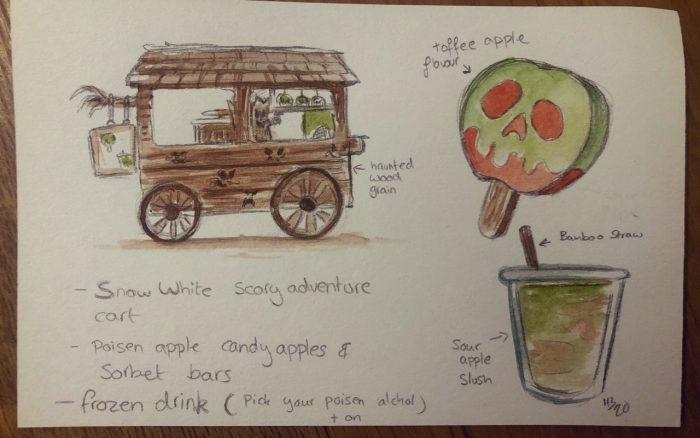 toffee apple
flavour
haunted
wood
grain
Bamboo Straw
Sour
apple
Slush
- Snow White scary adventure
cart
- Poisen apple candy apples &
Sorbet bars
- frozen drink ( Pick your poisen alchol )
+ on
HB/20